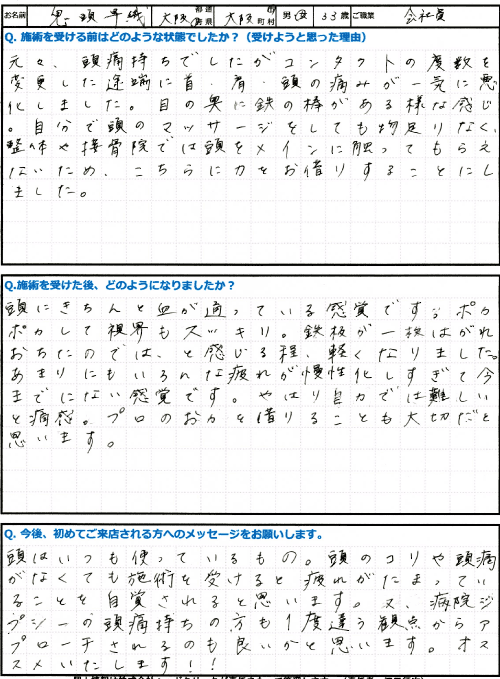 お名前 思頭 早織 大阪 都道府県 大阪 市郡町村 男・女 33歳 ご職業 会社員
Q. 施術を受ける前はどのような状態でしたか？（受けようと思った理由）
元々、頭痛持ちでしたがコンタクトの度数を
変更した途端に首・肩・頭の痛みが一気に悪
化しました。目の奥に鉄の棒がある様な感じ
。自分で頭のマッサージをしても物足りなく、
整体や接骨院では頭をメインに触ってもらえ
ないため、こちらに力をお借りすることにし
ました。
Q.施術を受けた後、どのようになりましたか？
頭にきちんと血が通っている感覚です；ポカ
ポカして視界もスッキリ。鉄板が一枚はがれ
おちたのでは、と感じる程、軽くなりました。
あまりにもいろんな疲れが慢性化しすぎて今
までにない感覚です。やはり自力では難しい
と痛感。プロのお力を借りることも大切だと
思います。
Q. 今後、初めてご来店される方へのメッセージをお願いします。
頭はいつも使っているもの。頭のコリや頭痛
がなくても施術を受けると疲れがたまってい
ることを自覚されると思います。又、病院ジ
プシーの頭痛持ちの方も1度違う観点からア
プローチされるのも良いかと思います。オス
スメいたします！！